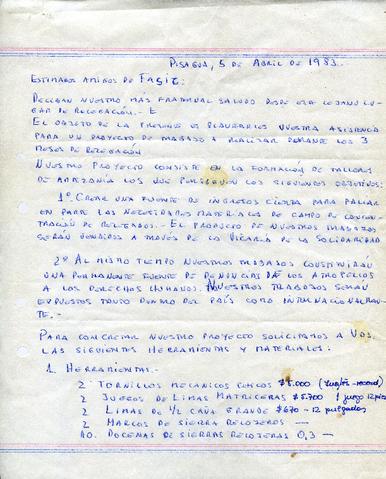 PISAGUA, 5 DE ABRIL DE 1983.
ESTIMADOS AMIGOS DE FASIC:
RECIBAN NUESTRO MÁS FRATERNAL SALUDO DESDE ESTE LEJANO LU-
GAR DE RELEGACIÓN.-
EL OBJETO DE LA PRESENTE ES PLANTEARLES NUESTRA
PARA UN PROYECTO DE TRABAJO A REALIZAR DURANTE LOS 3
MESES DE RELEGACIÓN
NUESTRO PROYECTO CONSISTE EN LA FORMACIÓN DE TALLERES
DE ARTESANÍA LOS QUE PERSIGUEN LOS SIGUIENTES OBJETIVOS:
1º. CREAR UNA FUENTE DE INGRESOS CIERTA PARA PALIAR
EN PARTE LAS NECESIDADES MATERIALES DE CAMPO DE CONCEN-
TRACIÓN DE RELEGADOS.- EL PRODUCTO DE NUESTROS TRABAJOS
SERÁN VENDIDOS A TRAVÉS DE LA VICARÍA DE LA SOLIDARIDAD
2º AL MISMO TIEMPO NUESTROS TRABAJOS CONSTITUIRÁN
UNA PERMANENTE FUENTE DE DENUNCIAS DE LOS ATROPELLOS
A LOS DERECHOS HUMANOS. NUESTROS TRABAJOS SERÁN
EXPUESTOS TANTO DENTRO DEL PAÍS COMO INTERNACIONALMEN-
TE.-
PARA CONCRETAR NUESTRO PROYECTO SOLICITAMOS A UDS.
LAS SIGUIENTES HERRAMIENTAS Y MATERIALES:
1. HERRAMIENTAS.-
2 TORNILLOS MECANICOS CHICOS $1.000
2 JUEGOS DE LIMAS MATRICERAS $5.700 1 juego 12
2 LIMAS DE 1/2 CAÑA GRANDE $670 - 12 pulgadas
2 MARCOS DE SIERRA RELOJEROS —
10. DOCENAS DE SIERRAS RELOJERAS 0,3 —